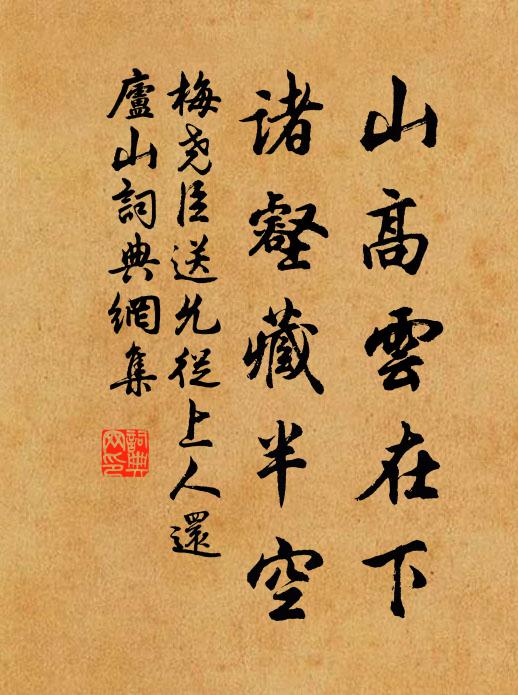 山高雲在下
諸壑藏半空
梅堯臣送允從上人還
廬山詞典網集
詞典網印